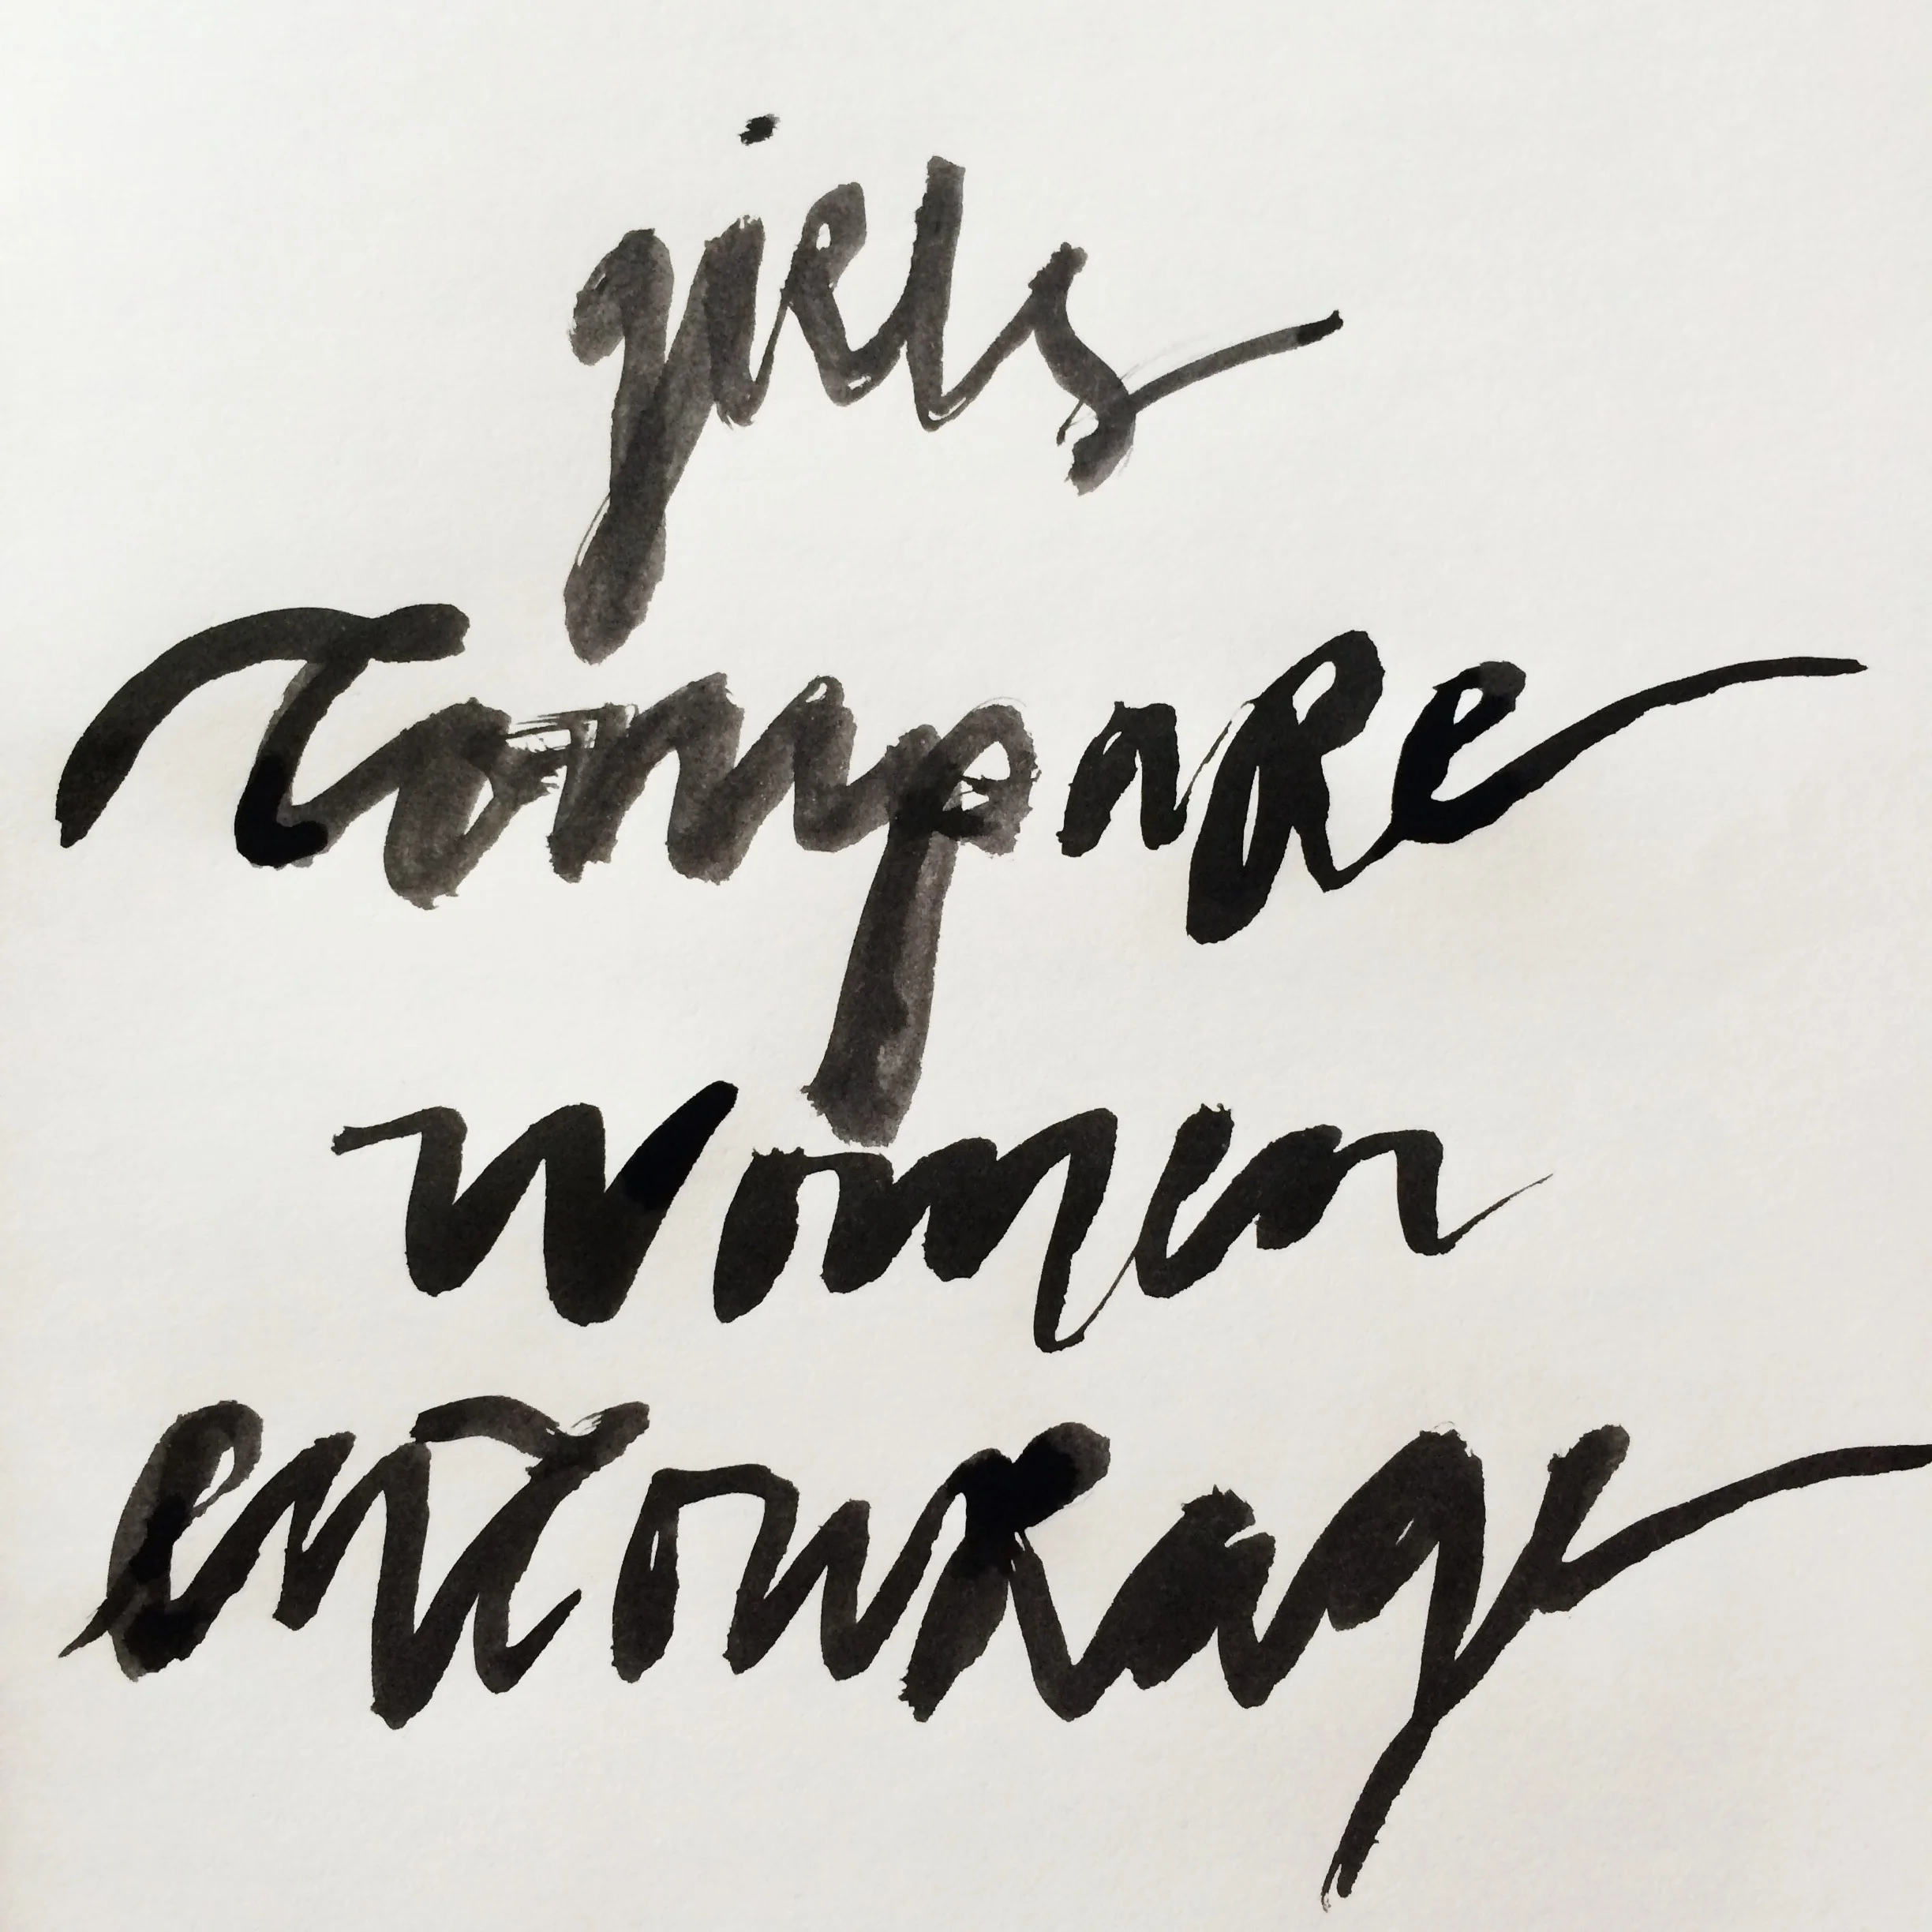 girls
Compare
women
encourage